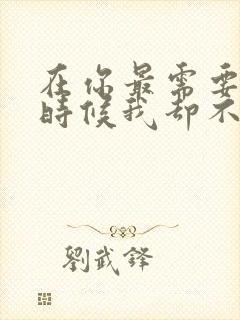 在你最需要
時候我却不
劉武鋒